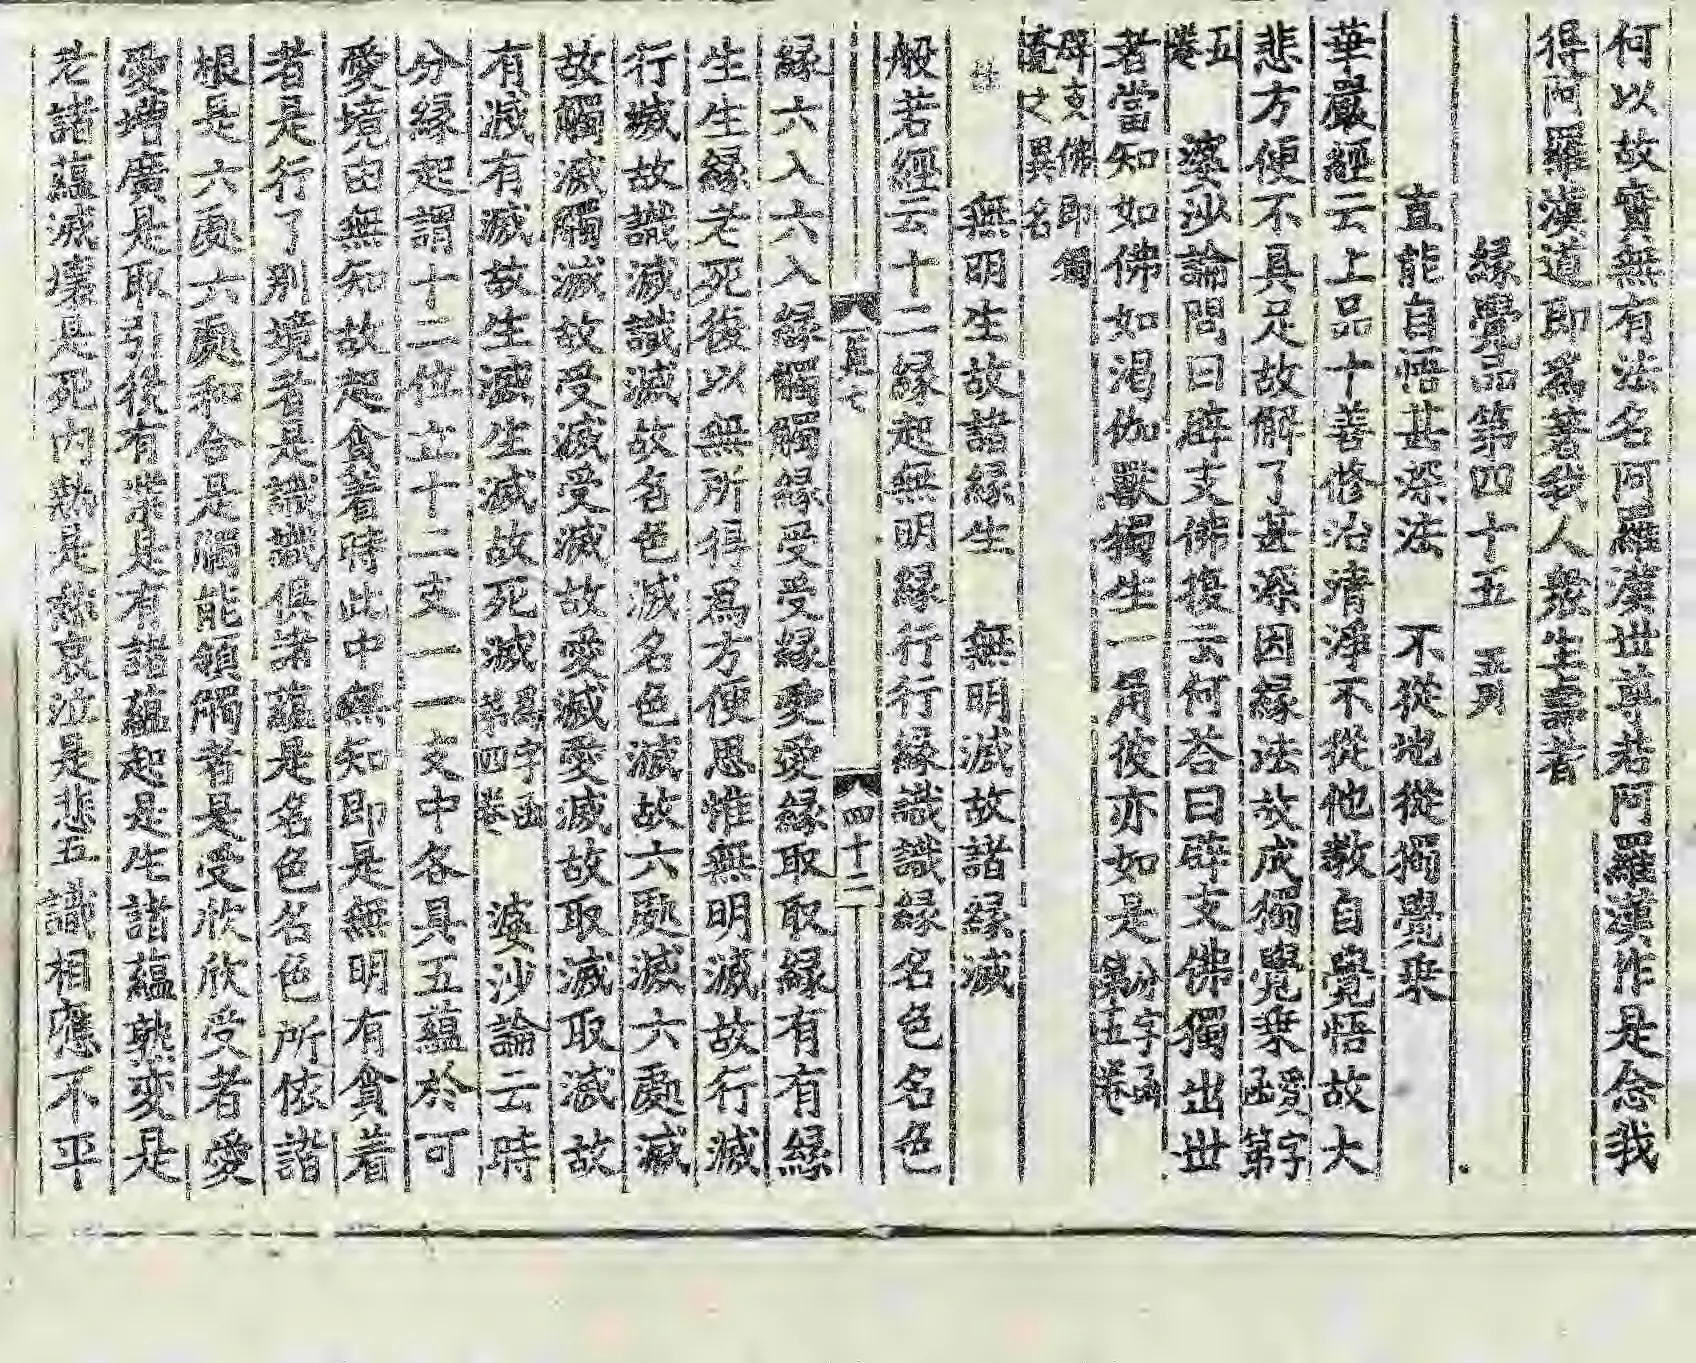 何以故實無有法名阿羅漢世尊若阿羅漢作是念我
得阿羅漢道即爲著我人衆生壽者
緣覺品第四十五 五列
直能自悟甚深法 不從他從獨覺乘
華嚴經云上品十善修治清淨不從他教自覺悟故大
悲方便不具足故解了甚深因緣法故成獨覺乘 字函第
五卷 婆沙論問曰辟支佛復云何荅曰辟支佛獨出世
者當知如佛如渴伽獸獨生一角彼亦如是 分字函第五卷
辟支佛即獨
覺之異名
無明生故諸緣生 無明滅故諸緣滅
般若經云十二緣起無明緣行行緣識識緣名色名色
真七 四十二
緣六入六入緣觸觸緣受受緣愛愛緣取取緣有有緣
生生緣老死後以無所得爲方便思惟無明滅故行滅
行滅故識滅識滅故名色滅名色滅故六處滅六處滅
故觸滅觸滅故受滅受滅故愛滅愛滅故取滅取滅故
有滅有滅故生滅生滅故死滅 字函第四卷 婆沙論云時
分緣起謂十二位立十二支一一支中各具五蘊於可
愛境由無知故起貪著時此中無知即是無明有貪著
者是行了別境者是識識俱諸蘊是名色名色所依諸
根是六處六處和合是觸能領觸者是受欣欣受者愛
愛增廣是取引後有業是有諸蘊起是生諸蘊熟變是
老諸蘊滅壞是死內熱是愁哀泣是悲五識相應不平